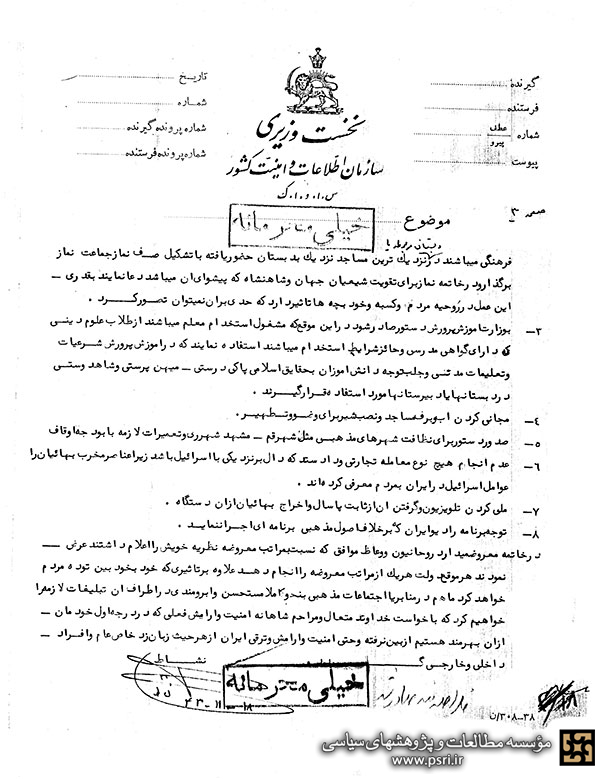 گیرنده
فرستنده
شماره عطف پیرو
پیوست
تاریخ
شماره
شماره پرونده گیرنده
شماره پرونده فرستنده
نخست وزیری
سازمان اطلاعات و امنیت کشور
س.ا.و.ا.ک
صفحه ۳
موضوع
خیلی محرمانه
فرهنگی میباشند در نزدیک ترین مساجد نزدیک بدبستان حضور یافته با تشکیل صف نماز جماعت نماز
برگذار و در خاتمه نماز برای تقویت شیعیان جهان و شاهنشاه که پیشوای آن میباشد دعا نمایند بقدری
این عمل در روحیه مردم وکسبه وخود بچه ها تاثیر دارد که حدی بر آن نمیتوان تصور کرد.
۳- بوزارت آموزش پرورش دستور صادر شود در این موقع که مشغول استخدام معلم میباشند از طلاب علوم دینی
که دارای گواهی مدرسی وحائز شرایط استخدام میباشند استفاده نمایند که در آموزش پرورش شرعیات
وتعلیمات مدنی وجلب توجه دانش آموزان بحقایق اسلامی پاکی درستی - میهن پرستی وشاهدوستی
در دبستانها یا دبیرستانها مورد استفاده قرار گیرند.
۴- مجانی کردن آب وبرق مساجد ونصب شیر برای وضو وتطهیر.
۵- صدور دستور برای نظافت شهرهای مذهبی مثل شهر قم - مشهد شهرری وتعمیرات لازمه با بودجه اوقاف
۶- عدم انجام هیچ نوع معامله تجارتی وداد وستد که دال بر نزدیکی با اسرائیل باشد زیرا عناصر مخرب بهائیان را
عوامل اسرائیل در ایران بمردم معرفی کرده اند.
۷- ملی کردن تلویزیون وگرفتن آن از ثابت پاسال واخراج بهائیان از آن دستگاه.
۸- توجه برنامه رادیو ایران که برخلاف اصول مذهبی برنامه ای اجرا ننماید.
در خاتمه معروض میدارد روحانیون ووعاظ موافق که نسبت بمراتب معروضه نظریه خویش را اعلام داشتند عرض
نمودند هر موقع دولت هر یک از مراتب معروضه را انجام دهد علاوه بر تاثیری که خود بخود بین توده مردم
خواهد کرد ما هم در منابر یا اجتماعات مذهبی بنحو کاملا مستحسن وآبرومندی در اطراف آن تبلیغات لازمه را
خواهیم کرد که با خواست خداوند متعال ومراحم شاهانه امنیت وآرامش فعلی که در درجه اول خودمان
از آن بهرمند هستیم از بین نرفته وحتی امنیت وآرامش وترقی ایران از هر حیث زبان زد خاص عام وافراد
داخلی وخارجی گردد
نشاط
خیلی محرمانه
۴۳-۱۱-۱۸
۳۰۸-۳۸/ن
مؤسسه مطالعات و پژوهشهای سیاسی
www.psri.ir